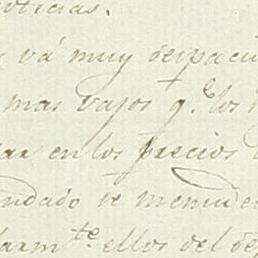 oticias.
vá muy despacio
mas vajos q.e los
ar en los precios
ndado se menude
larm.te ellos del de